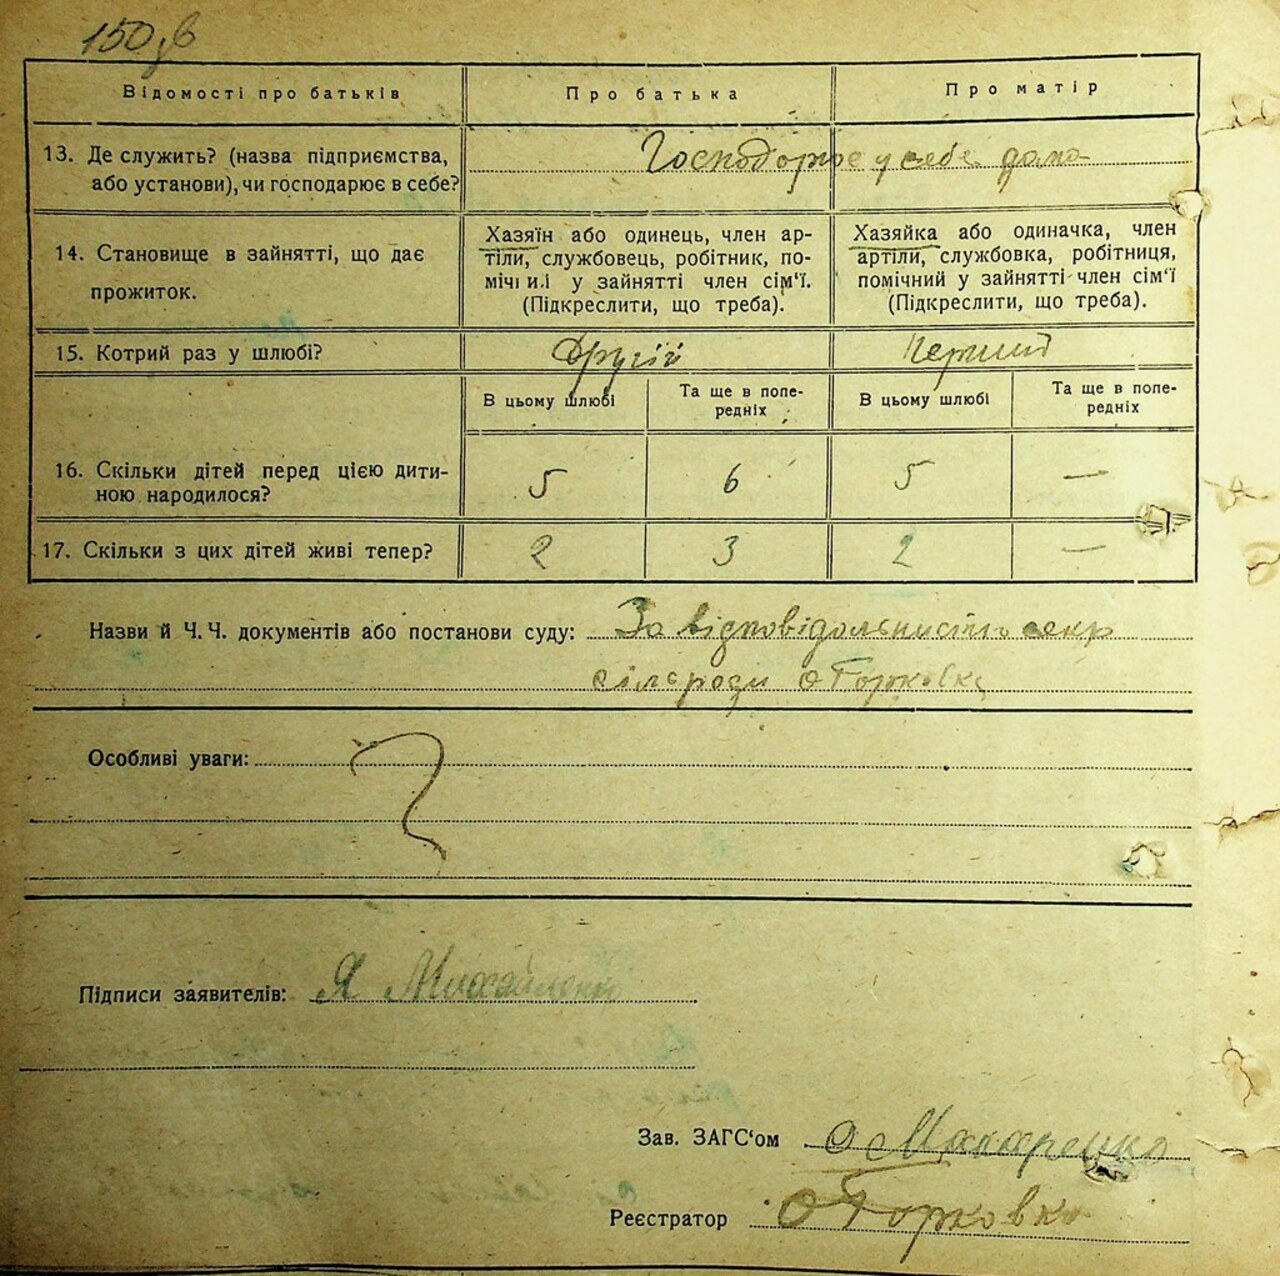 150 зв
Відомості про батьків
Про батька
Про матір
13. Де служить? (назва підприємства, або установи), чи господарює в себе?
Господорює у себе дома
14. Становище в зайнятті, що дає прожиток.
Хазяїн або одинець, член ар-
тіли, службовець, робітник, по-
мічний у зайнятті член сім‘ї.
(Підкреслити, що треба).
Хазяйка або одиначка, член
артіли, службовка, робітниця,
помічний у зайнятті член сім‘ї
(Підкреслити, що треба).
15. Котрий раз у шлюбі?
Другій
Перший
В цьому шлюбі
Та ще в попе-
редніх
В цьому шлюбі
Та ще в попе-
редніх
16. Скільки дітей перед цією дити-
ною народилося?
5 6 5 —
17. Скільки з цих дітей живі тепер?
2 3 2 —
Назви й Ч. Ч. документів або постанови суду: За відповідальнистю секр
сілсради О Горковка
Особливі уваги:
Підписи заявителів: Я Михайленко
Зав. ЗАГС‘ом О Макаренко
Реєстратор О Горковка